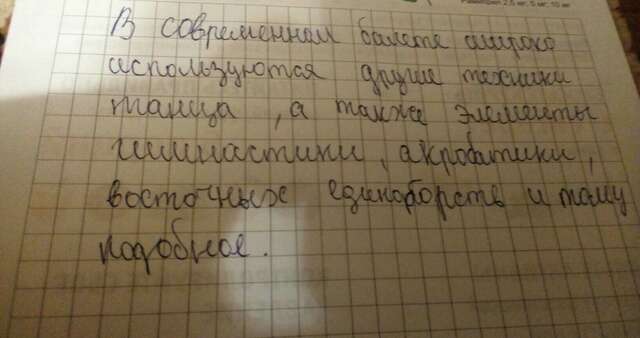 Размером 2,5 мг, 5 мг, 10 мг
В современном балете широко
используются другие техники
танца, а также элементы
гимнастики, акробатики,
восточных единоборств и тому
подобное.